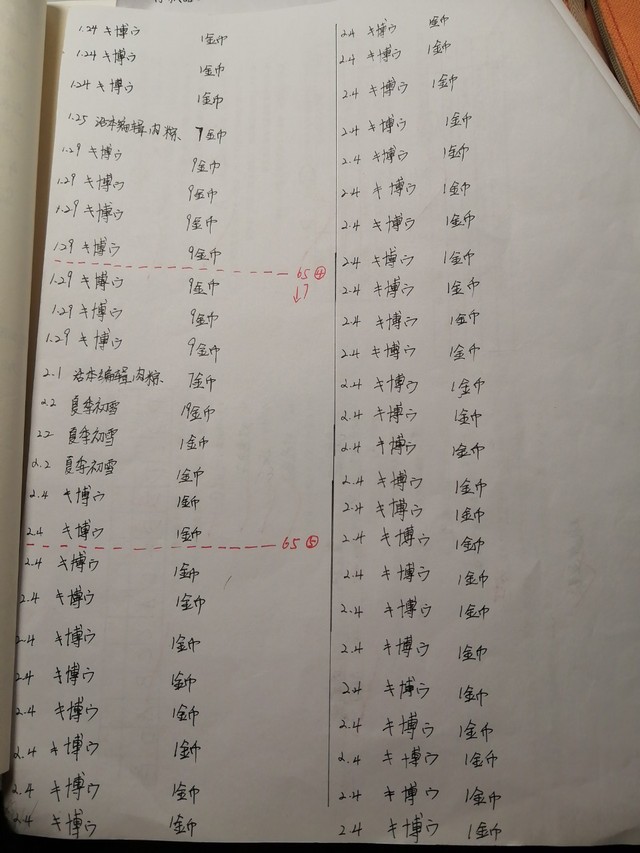 1.24 キ博ウ 1金币
1.24 キ博ウ 1金币
1.24 キ博ウ 1金币
1.25 话本编辑肉粽、 7金币
1.29 キ博ウ 9金币
1.29 キ博ウ 9金币
1.29 キ博ウ 9金币
1.29 キ博ウ 9金币
65 ④
↓7
1.29 キ博ウ 9金币
1.29 キ博ウ 9金币
1.29 キ博ウ 9金币
2.1 话本编辑肉粽、 7金币
2.2 夏季初雪 19金币
2.2 夏季初雪 1金币
2.2 夏季初雪 1金币
2.4 キ博ウ 1金币
2.4 キ博ウ 1金币
65 ⑤
2.4 キ博ウ 1金币
2.4 キ博ウ 1金币
2.4 キ博ウ 1金币
2.4 キ博ウ 1金币
2.4 キ博ウ 1金币
2.4 キ博ウ 1金币
2.4 キ博ウ 1金币
2.4 キ博ウ 1金币
2.4 キ博ウ 1金币
2.4 キ博ウ 1金币
2.4 キ博ウ 1金币
2.4 キ博ウ 1金币
2.4 キ博ウ 1金币
2.4 キ博ウ 1金币
2.4 キ博ウ 1金币
2.4 キ博ウ 1金币
2.4 キ博ウ 1金币
2.4 キ博ウ 1金币
2.4 キ博ウ 1金币
2.4 キ博ウ 1金币
2.4 キ博ウ 1金币
2.4 キ博ウ 1金币
2.4 キ博ウ 1金币
2.4 キ博ウ 1金币
2.4 キ博ウ 1金币
2.4 キ博ウ 1金币
2.4 キ博ウ 1金币
2.4 キ博ウ 1金币
2.4 キ博ウ 1金币
2.4 キ博ウ 1金币
2.4 キ博ウ 1金币
2.4 キ博ウ 1金币
2.4 キ博ウ 1金币